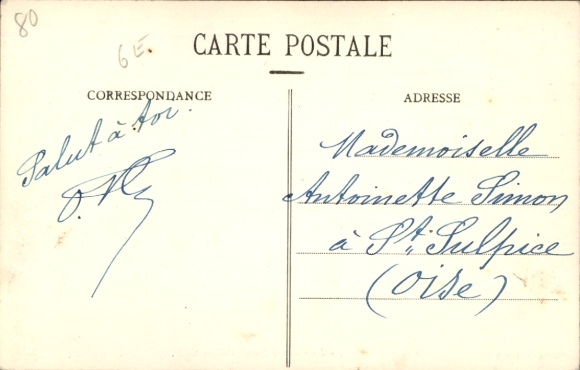 80
6E
CARTE POSTALE
CORRESPONDANCE
Salut à toi.
ADRESSE
Mademoiselle
Antoinette Simon
à St Sulpice
(Oise)